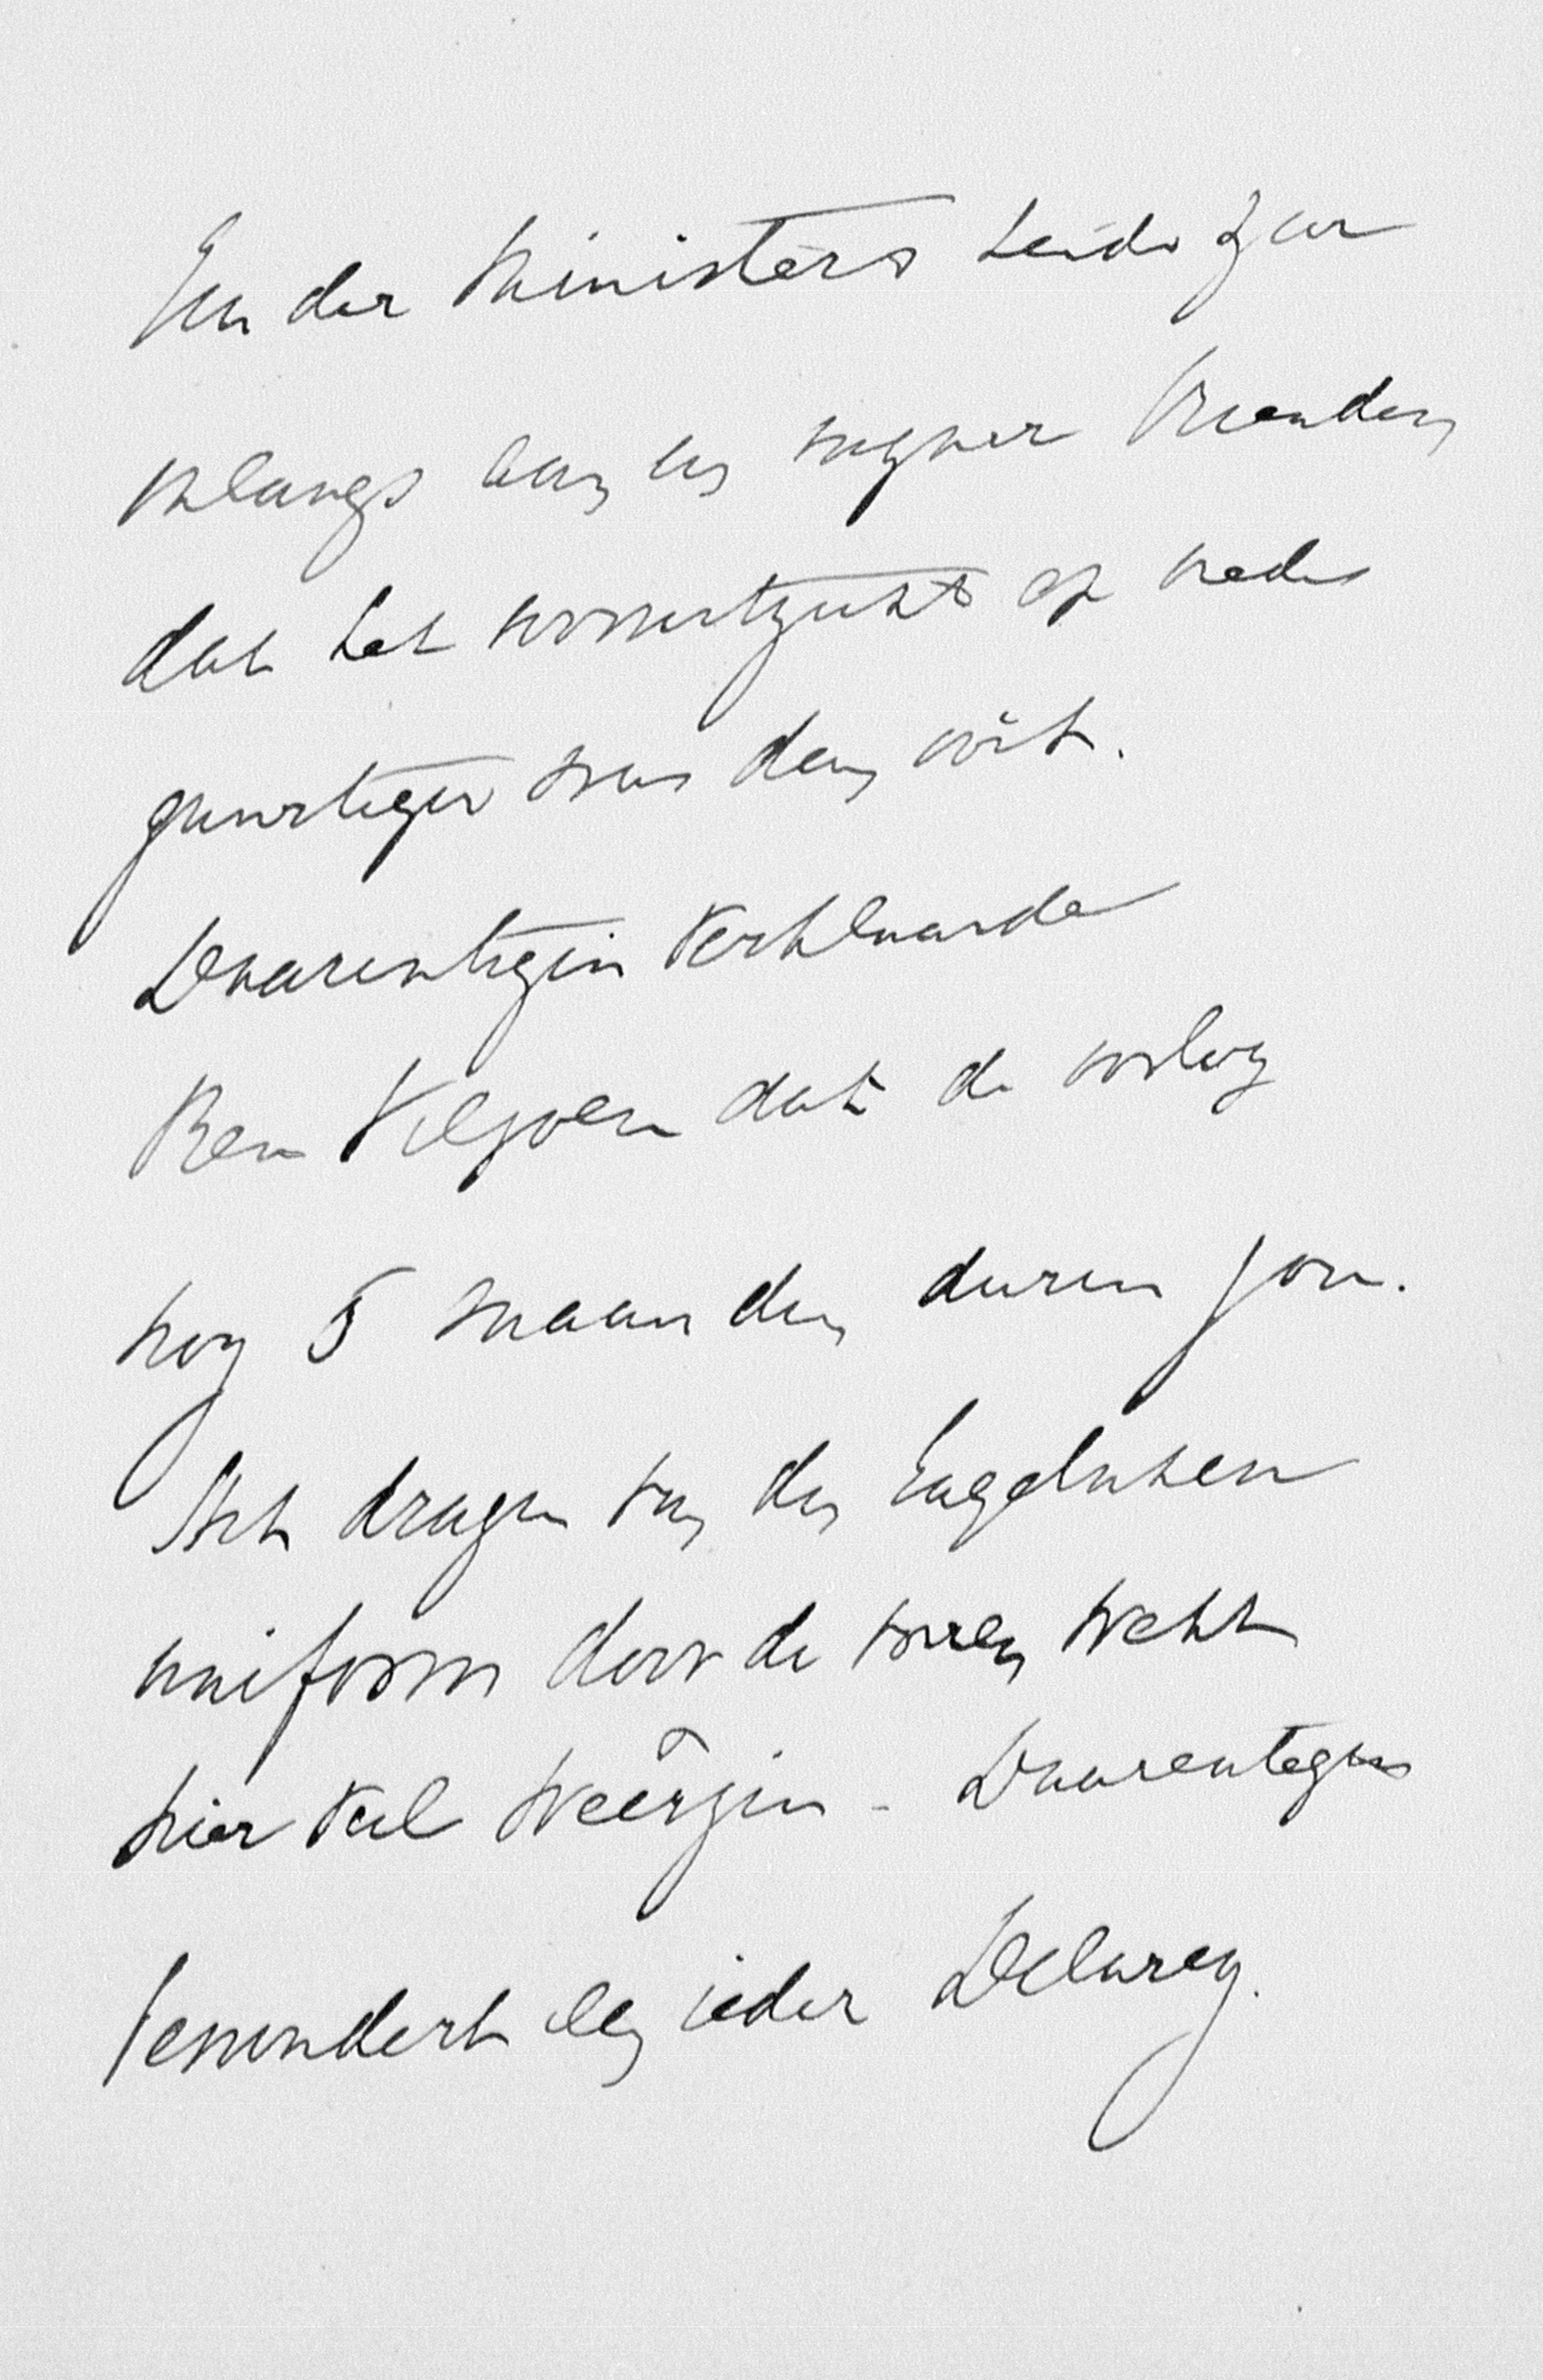 Een der Ministers seide zoo
onlangs aan een mijner vrienden
dat het vooruitzicht op vrede
gunstiger was dan ooit.
Daarentegen verklaarde
Ben Viljoen dat de oorlog
nog 5 maanden duren zou.
Het dragen van den Engelschen
uniform door de boeren wekt
hier veel weêrzin - Daarentegen
bewondert een ieder Delarey.